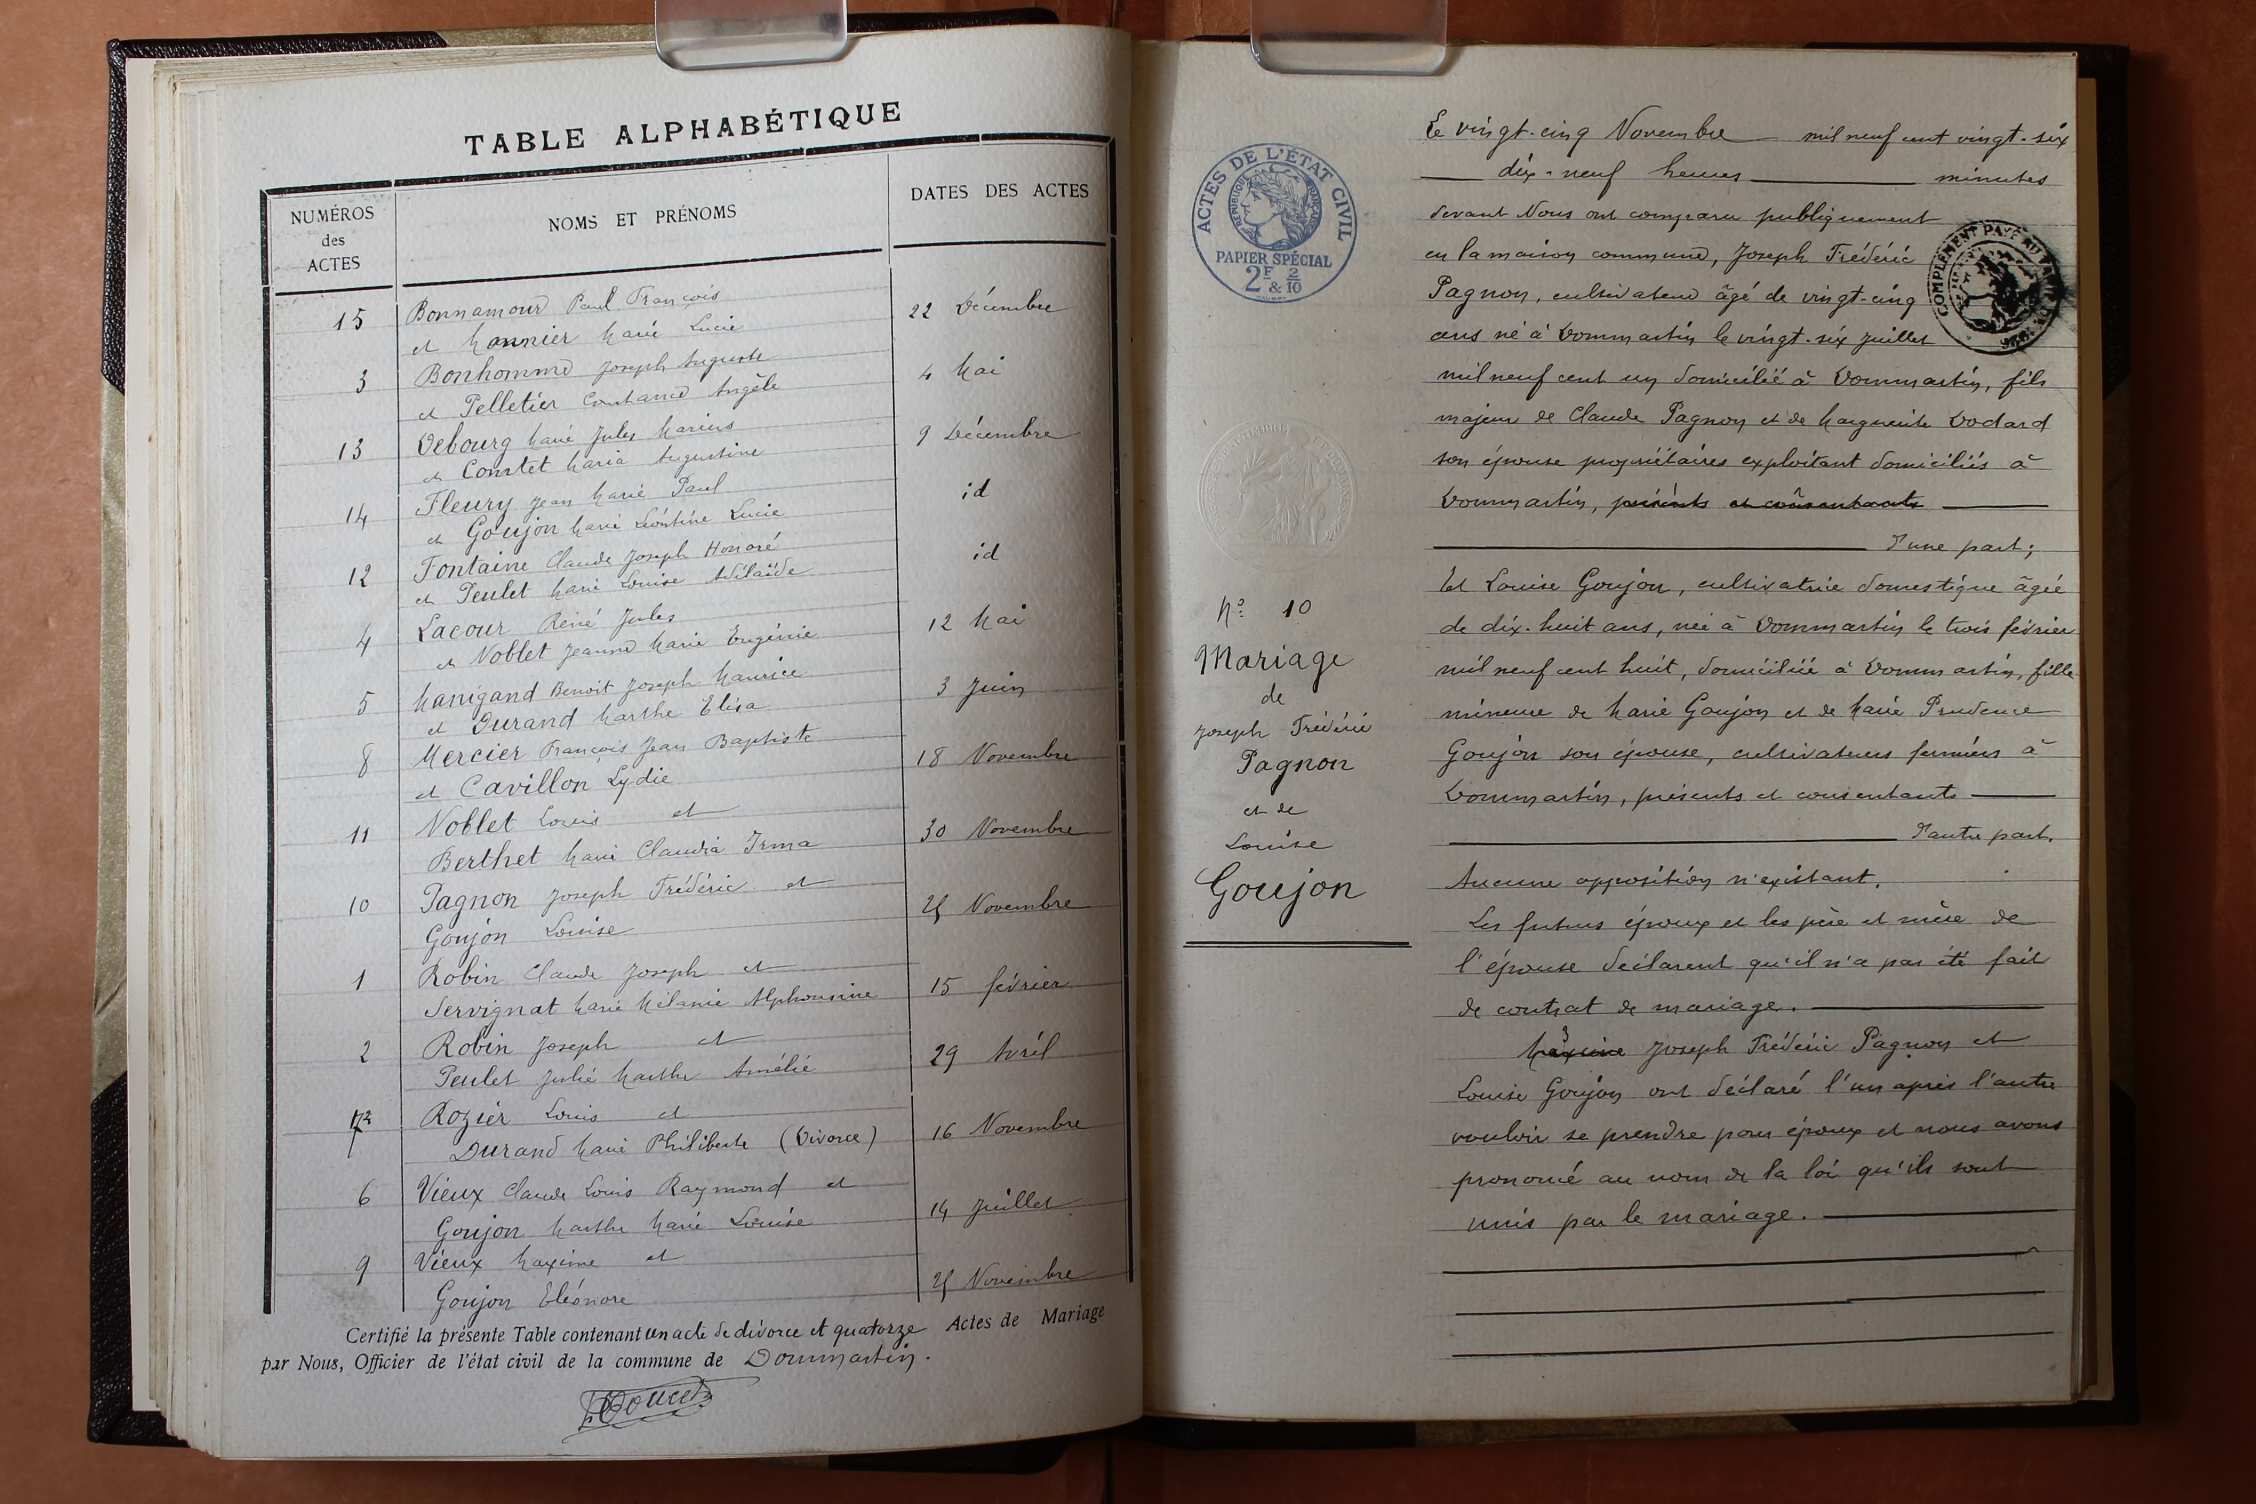 TABLE ALPHABÉTIQUE
NUMÉROS
des
ACTES
NOMS ET PRÉNOMS
DATES DES ACTES
15 Bonnamour Paul François
et Monnier Marie Lucie 22 Décembre
3 Bonhomme Joseph Auguste
et Pelletier Constance Angèle 4 Mai
13 Debourg Marie Jules Marius
et Comtet Maria Augustine 9 Décembre
14 Fleury Jean Marie Paul
et Goujon Marie Léontine Lucie id
12 Fontaine Claude Joseph Honoré
et Peulet Marie Louise Adélaïde id
4 Lacour Réné Jules
et Noblet Jeanne Marie Eugénie 12 Mai
5 Manigand Benoit Joseph Maurice
et Durand Marthe Elisa 3 Juin
8 Mercier François Jean Baptiste
et Cavillon Lydie 18 Novembre
11 Noblet Louis et
Berthet Marie Claudia Irma 30 Novembre
10 Pagnon Joseph Frédéric et
Goujon Louise 25 Novembre
1 Robin Claude Joseph et
Servignat Marie Mélanie Alphonsine 15 février
2 Robin Joseph et
Peulet Julie Marthe Amélie 29 Avril
7 Rozier Louis et
Durand Marie Philiberte (Divorce) 16 Novembre
6 Vieux Claude Louis Raymond et
Goujon Marthe Marie Louise 14 Juillet
9 Vieux Maxime et
Goujon Eléonore 25 Novembre
Certifié la présente Table contenant un acte de divorce et quatorze Actes de Mariage
par Nous, Officier de l'état civil de la commune de Dommartin.
ACTES DE L'ÉTAT CIVIL
RÉPUBLIQUE FRANÇAISE
PAPIER SPÉCIAL
2F & 2/10
No 10
Mariage
de
Joseph Frédéric
Pagnon
et de
Louise
Goujon
Le vingt-cinq Novembre mil neuf cent vingt-six
dix-neuf heures minutes
devant Nous ont comparu publiquement
en la maison commune, Joseph Frédéric
Pagnon, cultivateur âgé de vingt-cinq
ans né à Dommartin le vingt-six Juillet
COMPLÉMENT PAYÉ
mil neuf cent un domicilié à Dommartin, fils
majeur de Claude Pagnon et de Marguerite Dodard
son épouse propriétaires exploitant domiciliés à
Dommartin, présents et consentants
d'une part;
Et Louise Goujon, cultivatrice domestique âgée
de dix-huit ans, née à Dommartin le trois février
mil neuf cent huit, domiciliée à Dommartin, fille
mineure de Marie Goujon et de Marie Prudence
Goujon son épouse, cultivateurs fermiers à
Dommartin, présents et consentants
d'autre part.
Aucune opposition n'existant.
Les futurs époux et les père et mère de
l'épouse déclarent qu'il n'a pas été fait
de contrat de mariage.
Maxime Joseph Frédéric Pagnon et
Louise Goujon ont déclaré l'un après l'autre
vouloir se prendre pour époux et nous avons
prononcé au nom de la loi qu'ils sont
unis par le mariage.